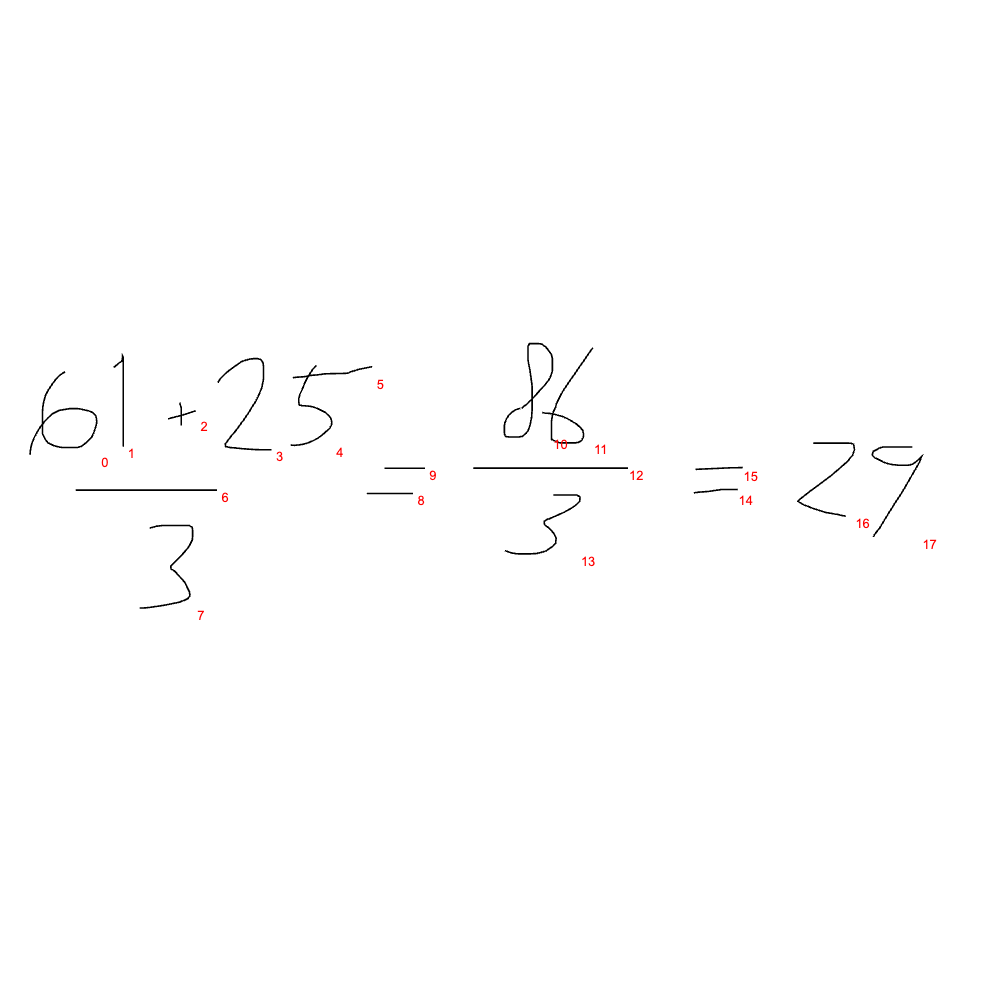 61 + 25
3
= 86
3
= 29
0 1 2 3 4 5 6 7 8 9 10 11 12 13 14 15 16 17